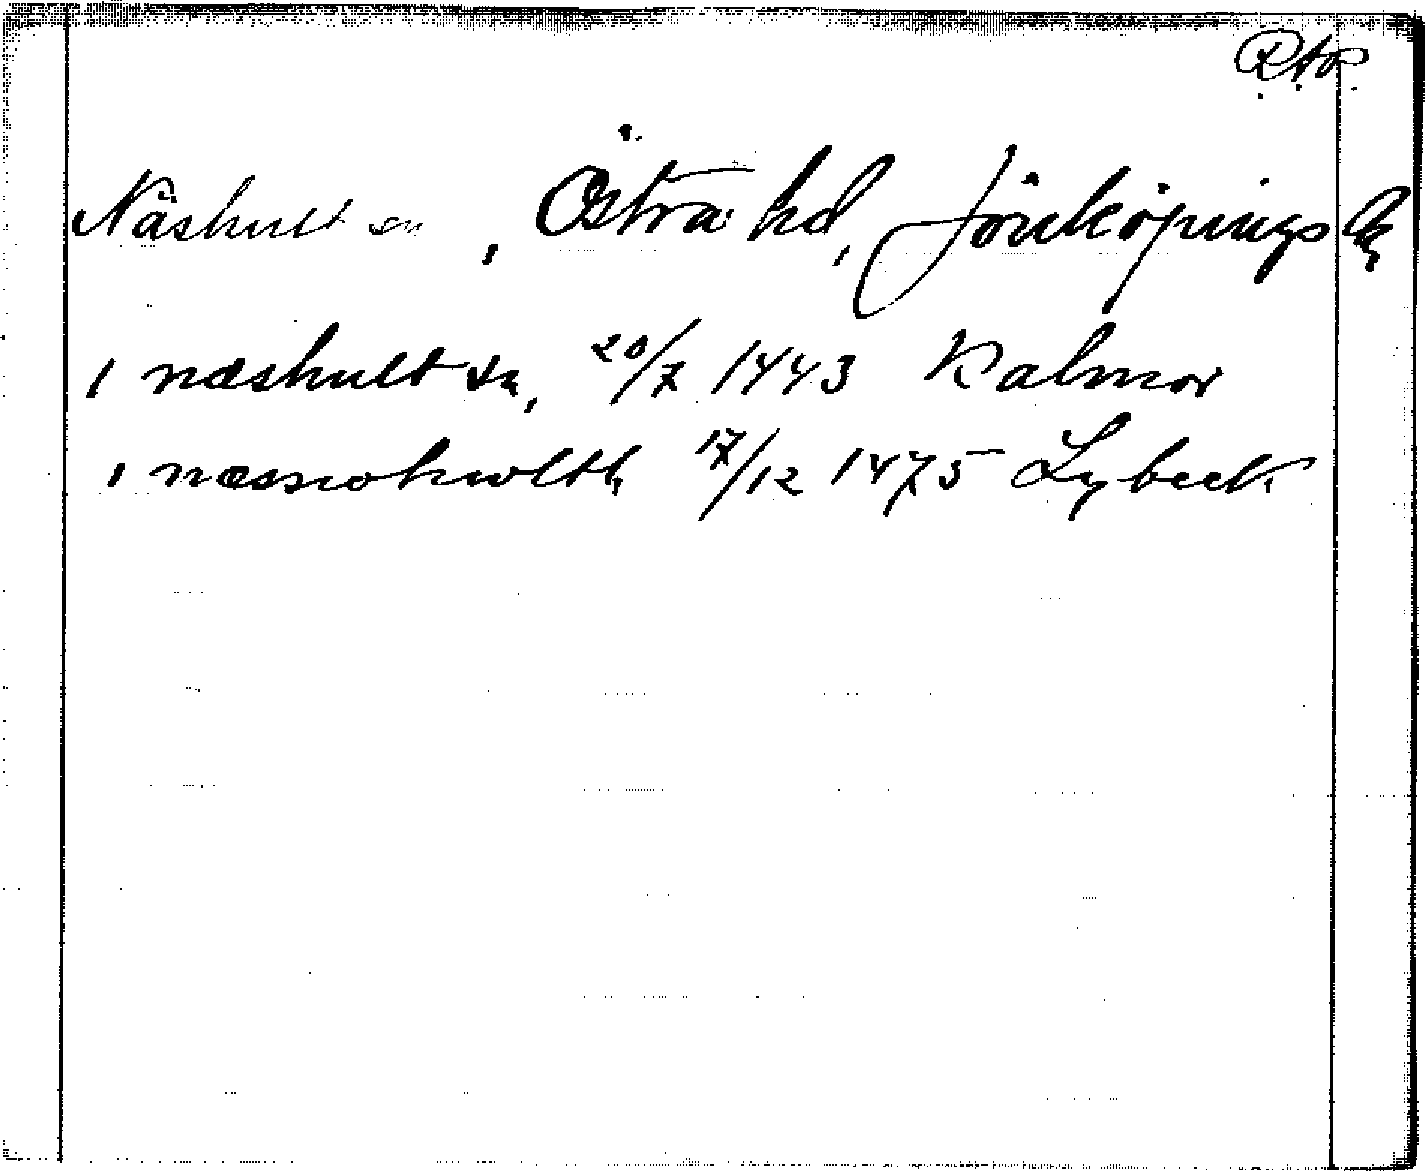 RAP.
Näshult sn, Östra hd, Jönköpings l.
i næshult sn, 20/7 1443 Kalmar
i næsswhwlth 17/12 1475 Lybeck